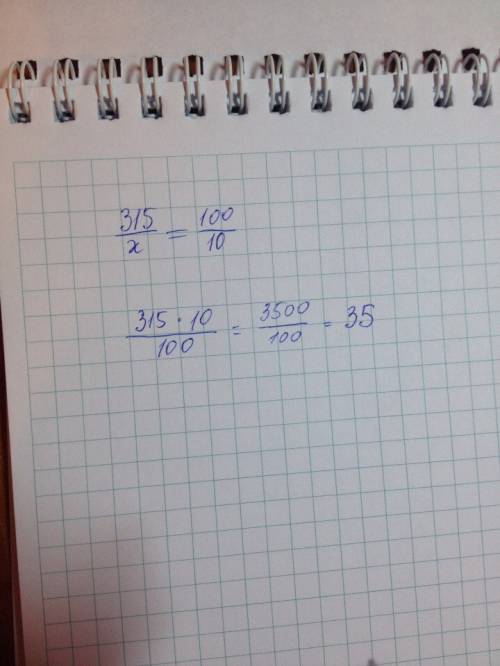 315/x = 100/10
315 · 10/100 = 3500/100 = 35